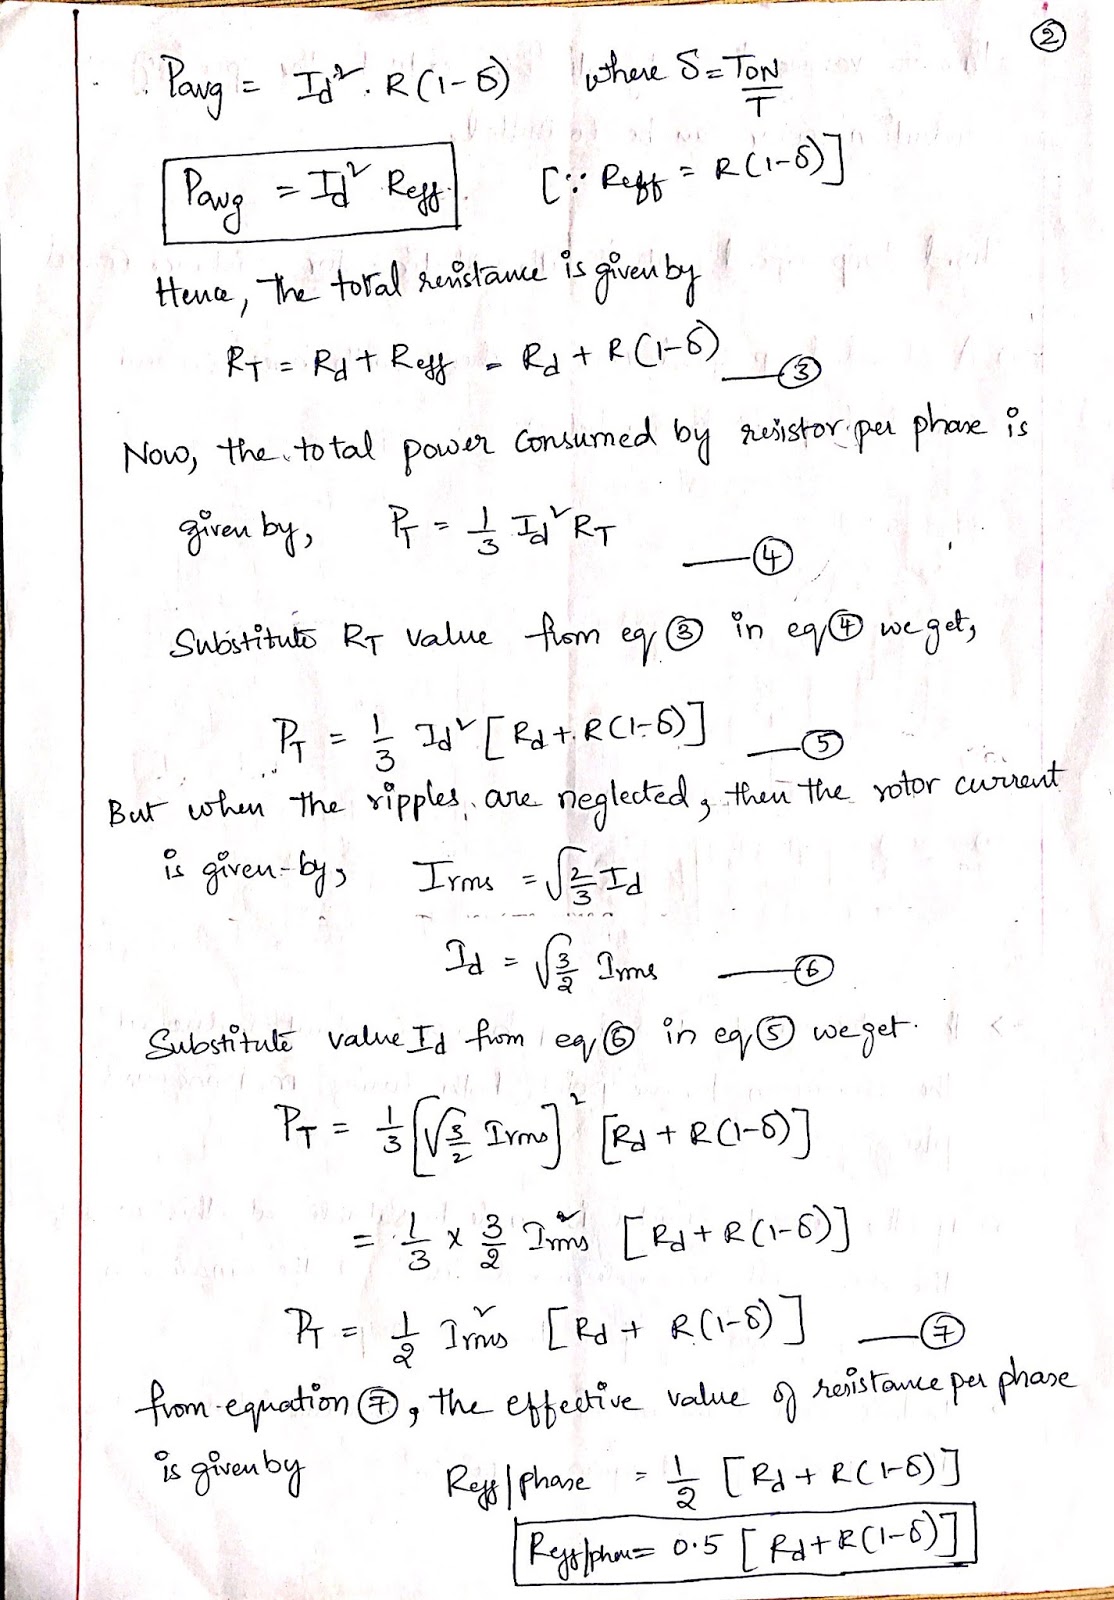 ②
∴ Pavg = Id². R(1-δ) where δ = TON/T
Pavg = Id² Reff. [∵ Reff = R(1-δ)]
Hence, the total resistance is given by
RT = Rd + Reff = Rd + R(1-δ) —③
Now, the total power consumed by resistor per phase is
given by, PT = 1/3 Id² RT —④
Substitute RT value from eq ③ in eq ④ we get,
PT = 1/3 Id² [Rd + R(1-δ)] —⑤
But when the ripples are neglected, then the rotor current
is given by, Irms = √2/3 Id
Id = √3/2 Irms —⑥
Substitute value Id from eq ⑥ in eq ⑤ we get.
PT = 1/3 [√3/2 Irms]² [Rd + R(1-δ)]
= 1/3 x 3/2 Irms² [Rd + R(1-δ)]
PT = 1/2 Irms² [Rd + R(1-δ)] —⑦
from equation ⑦, the effective value of resistance per phase
is given by Reff/phase = 1/2 [Rd + R(1-δ)]
Reff/phase = 0.5 [Rd + R(1-δ)]